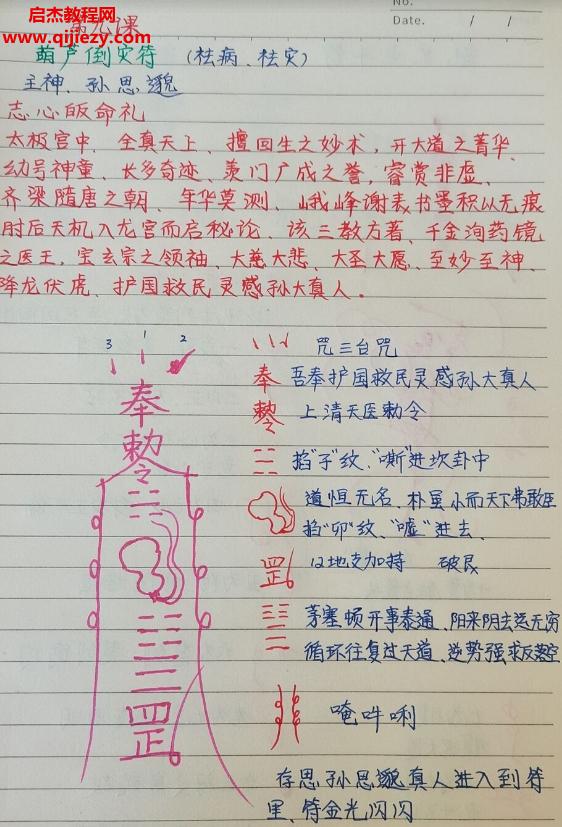 No.
Date. / /
启杰教程网
www.qijiezy.com
第九课
葫芦倒灾符 (祛病、祛灾)
主神、孙思邈
志心皈命礼
太极宫中、全真天上、擅回生之妙术，开大道之菁华、
幼号神童、长多奇迹、羡门广成之誉，睿赏非虚、
齐梁隋唐之朝、年华莫测、峨峰谢表书墨积以无痕
肘后天机入龙宫而启秘论、该三教方著、千金洵药镜
之医王，宝玄宗之领袖、大慈大悲、大圣大愿、至妙至神、
降龙伏虎、护国救民灵感孙大真人。
3 1 2
奉
勅令
罡
咒三台咒
奉 吾奉护国救民灵感孙大真人
勅令 上清天医勅令
掐"子"纹、"嘶"进坎卦中
道恒无名、朴虽小而天下弗敢臣
掐"卯"纹、"嘘"进去、
罡 12地支加持 破艮
茅塞顿开事泰通、阳来阴去运无穷
循环往复过天道、逆势强求反落空
唵吽唎
存思孙思邈真人进入到符
里、符金光闪闪